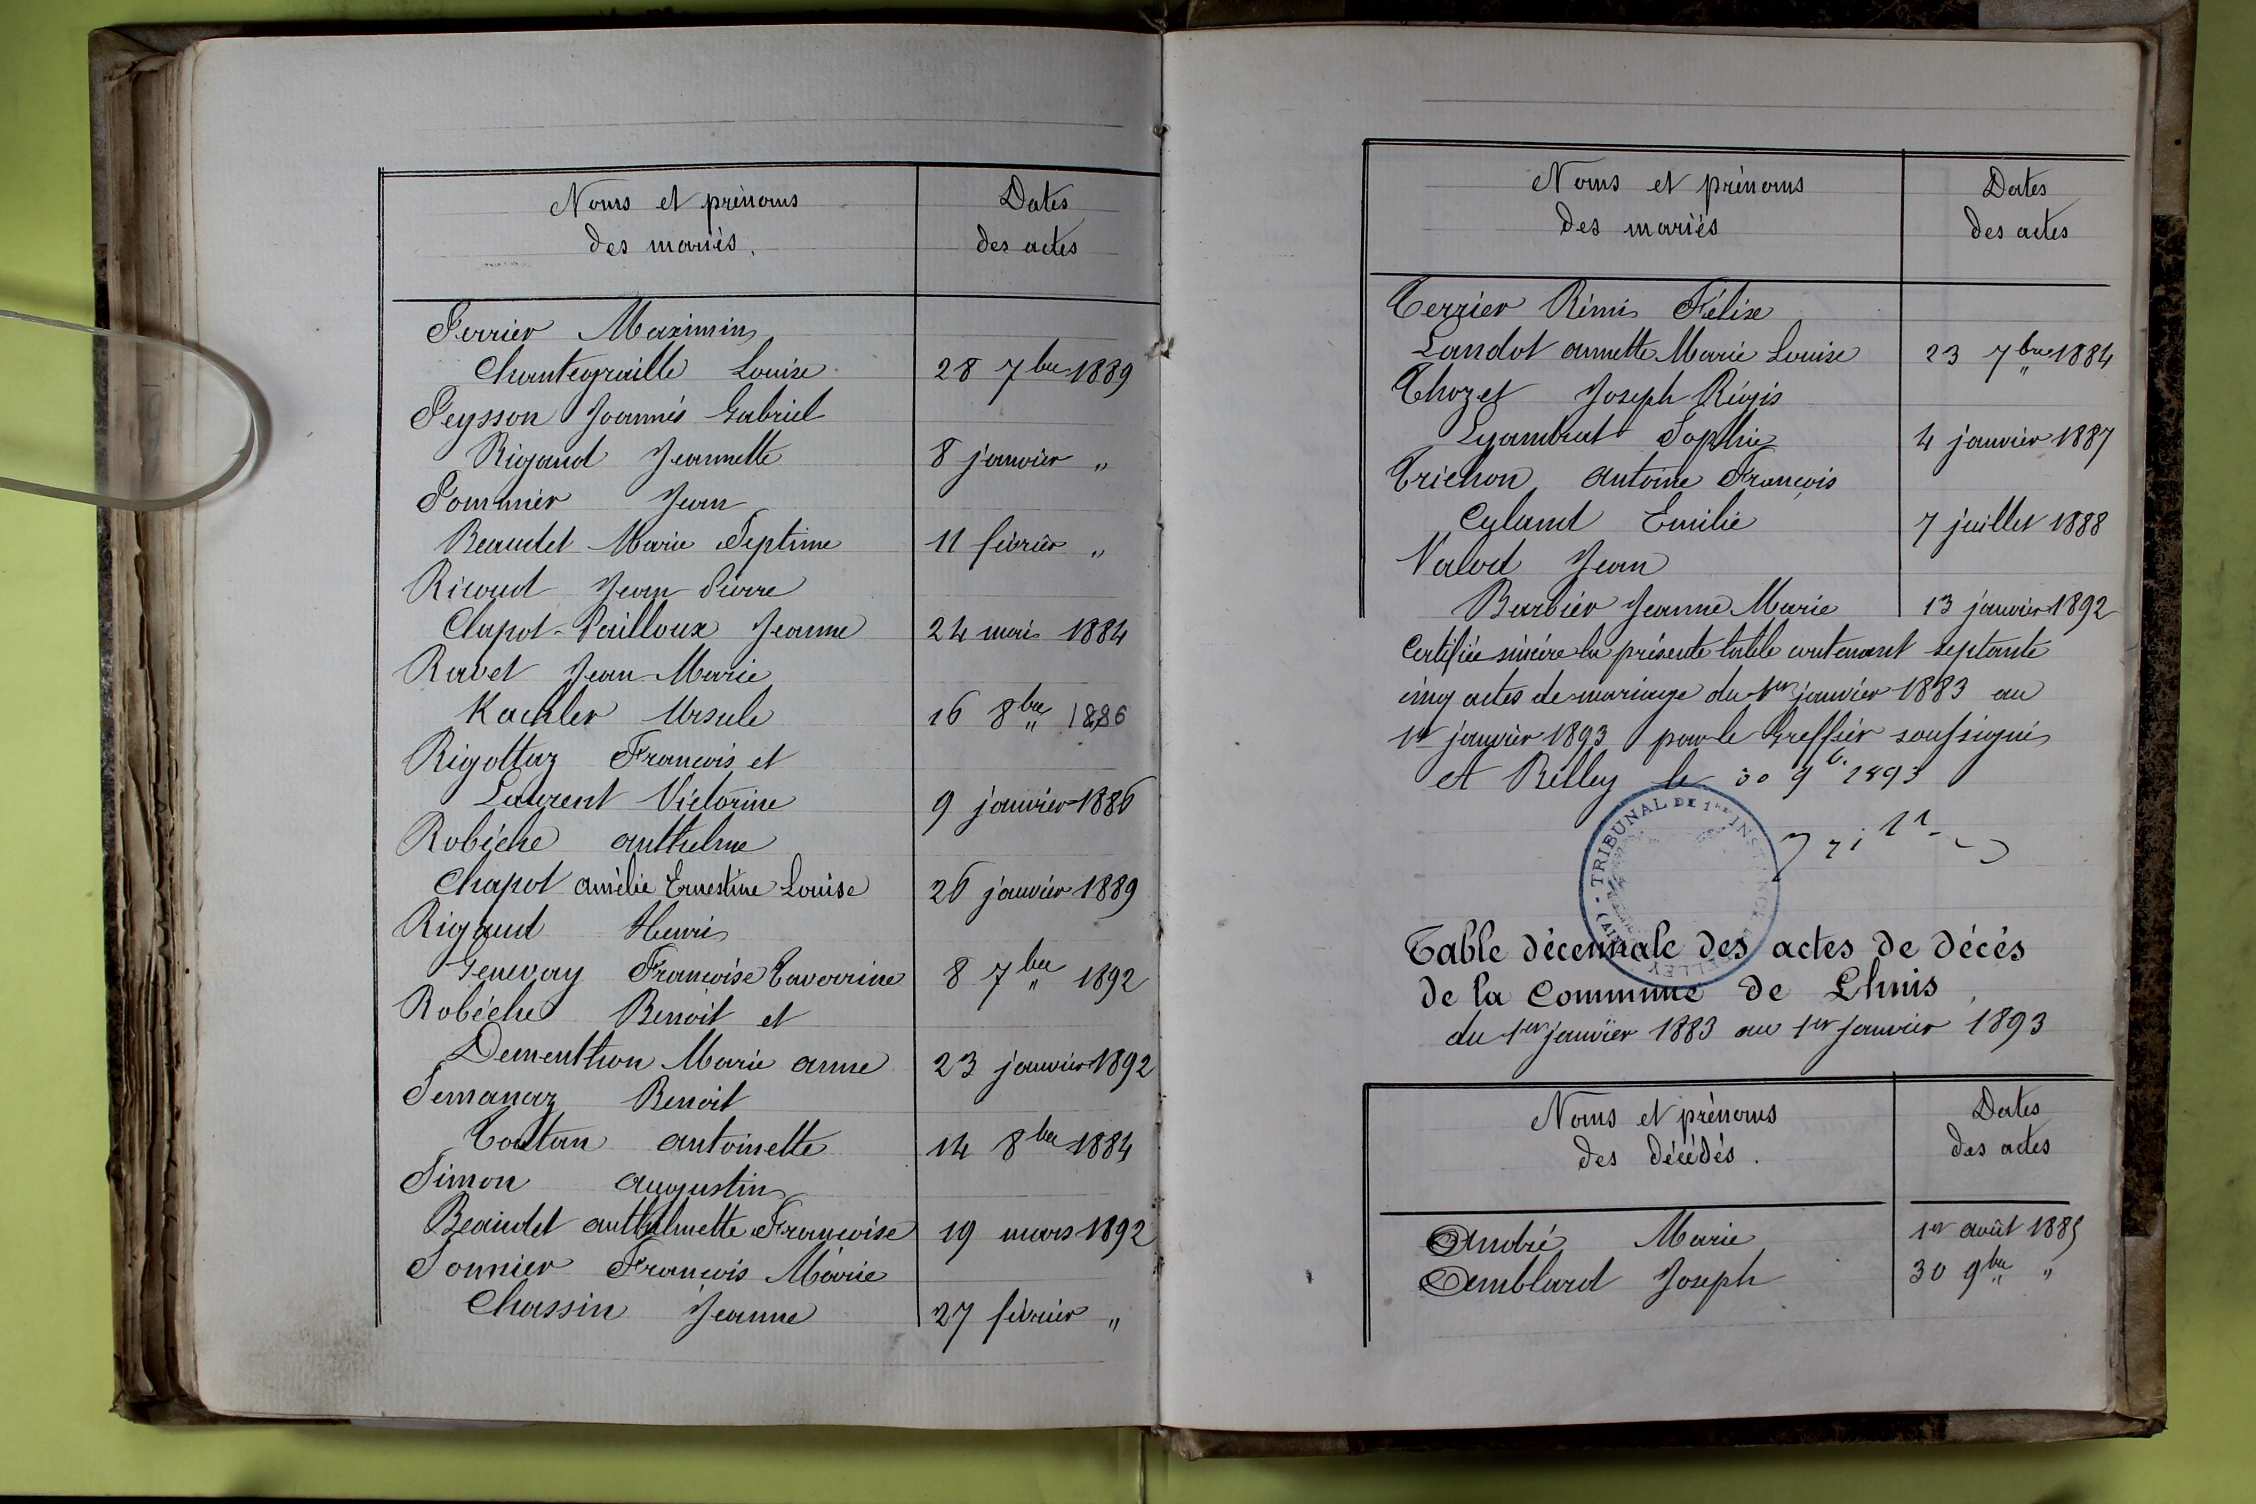 Noms et prénoms
des mariés.
Dates
des actes
Perrier Maximin
Chantegraille Louise 28 7bre 1889
Peysson Joannès Gabriel
Rigaud Jeannette 8 janvier "
Pommier Jean
Beaudet Marie Septime 11 février "
Ricoud Jean Pierre
Chapot-Pailloux Jeanne 24 mai 1884
Ravet Jean-Marie
Kachler Ursule 16 8bre 1886
Rigottaz François et
Laurent Victorine 9 janvier 1886
Robéche anthelme
Chapot amélie Ernestine Louise 26 janvier 1889
Rigaud Henri
Genevay Françoise 8 7bre 1892
Robéche Benoit et
Dementhon Marie anne 23 janvier 1892
Semanaz Benoit
Toutan antoinette 14 8bre 1884
Simon augustin
Beaudet anthelmette Françoise 19 mars 1892
Sonnier François Marie
Chassin Jeanne 27 février "
Noms et prénoms
des mariés
Dates
des actes
Terrier Rémi Félix
Landot annette Marie Louise 23 7bre 1884
Thozet Joseph Régis
Sophie 4 janvier 1887
Trichon antoine François
Cyland Emilie 7 juillet 1888
Valod Jean
Barbier Jeanne Marie 13 janvier 1892
Certifiée sincère la présente table contenant septante
cinq actes de mariage du 1er janvier 1883 au
1er janvier 1893 par le Greffier soussigné
A Belley le 30 9b. 1893
TRIBUNAL DE 1RE INSTANCE
Table décennale des actes de décès
de la Commune de Lhuis
du 1er janvier 1883 au 1er janvier 1893
Noms et prénoms
des décédés.
Dates
des actes
André Marie 1er août 1885
Amblard Joseph 30 9bre "